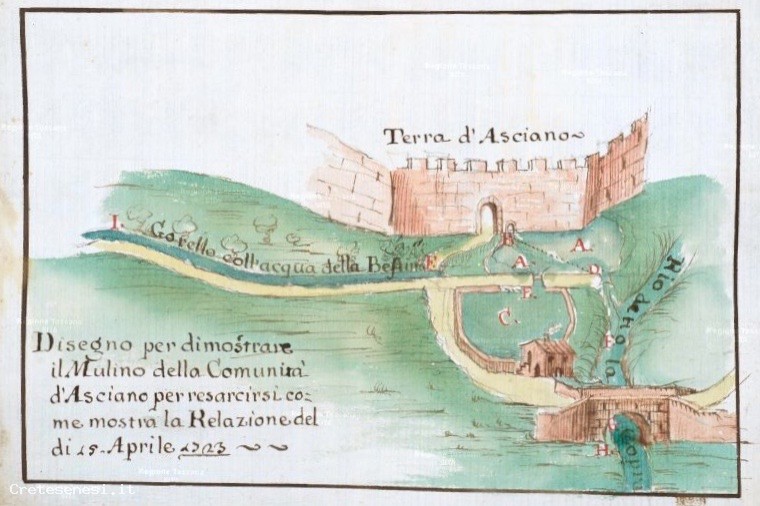 Terra d'Asciano
I.
Gorello coll'acqua della Bestina
E.
B
A.
A.
D.
F.
C.
Rio detto la
Copra
H.
Disegno per dimostrare
il Mulino della Comunità
d'Asciano per resarcirsi co=
me mostra la Relazione del
di 15. Aprile 1723
Cretesenesi.it